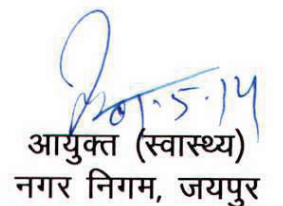 आयुक्त (स्वास्थ्य)
नगर निगम, जयपुर